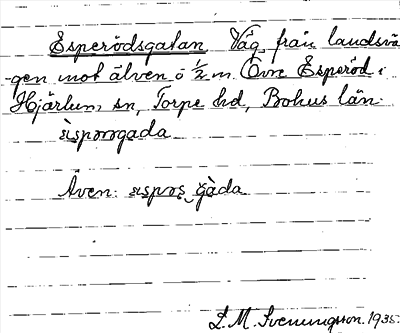 Esperödsgatan Väg från landsvä
gen mot älven ö ½ m. Övre Esperöd i
Hjärtum sn, Torpe hd, Bohus län.
Även:
L. M. Svenungsson. 1935.